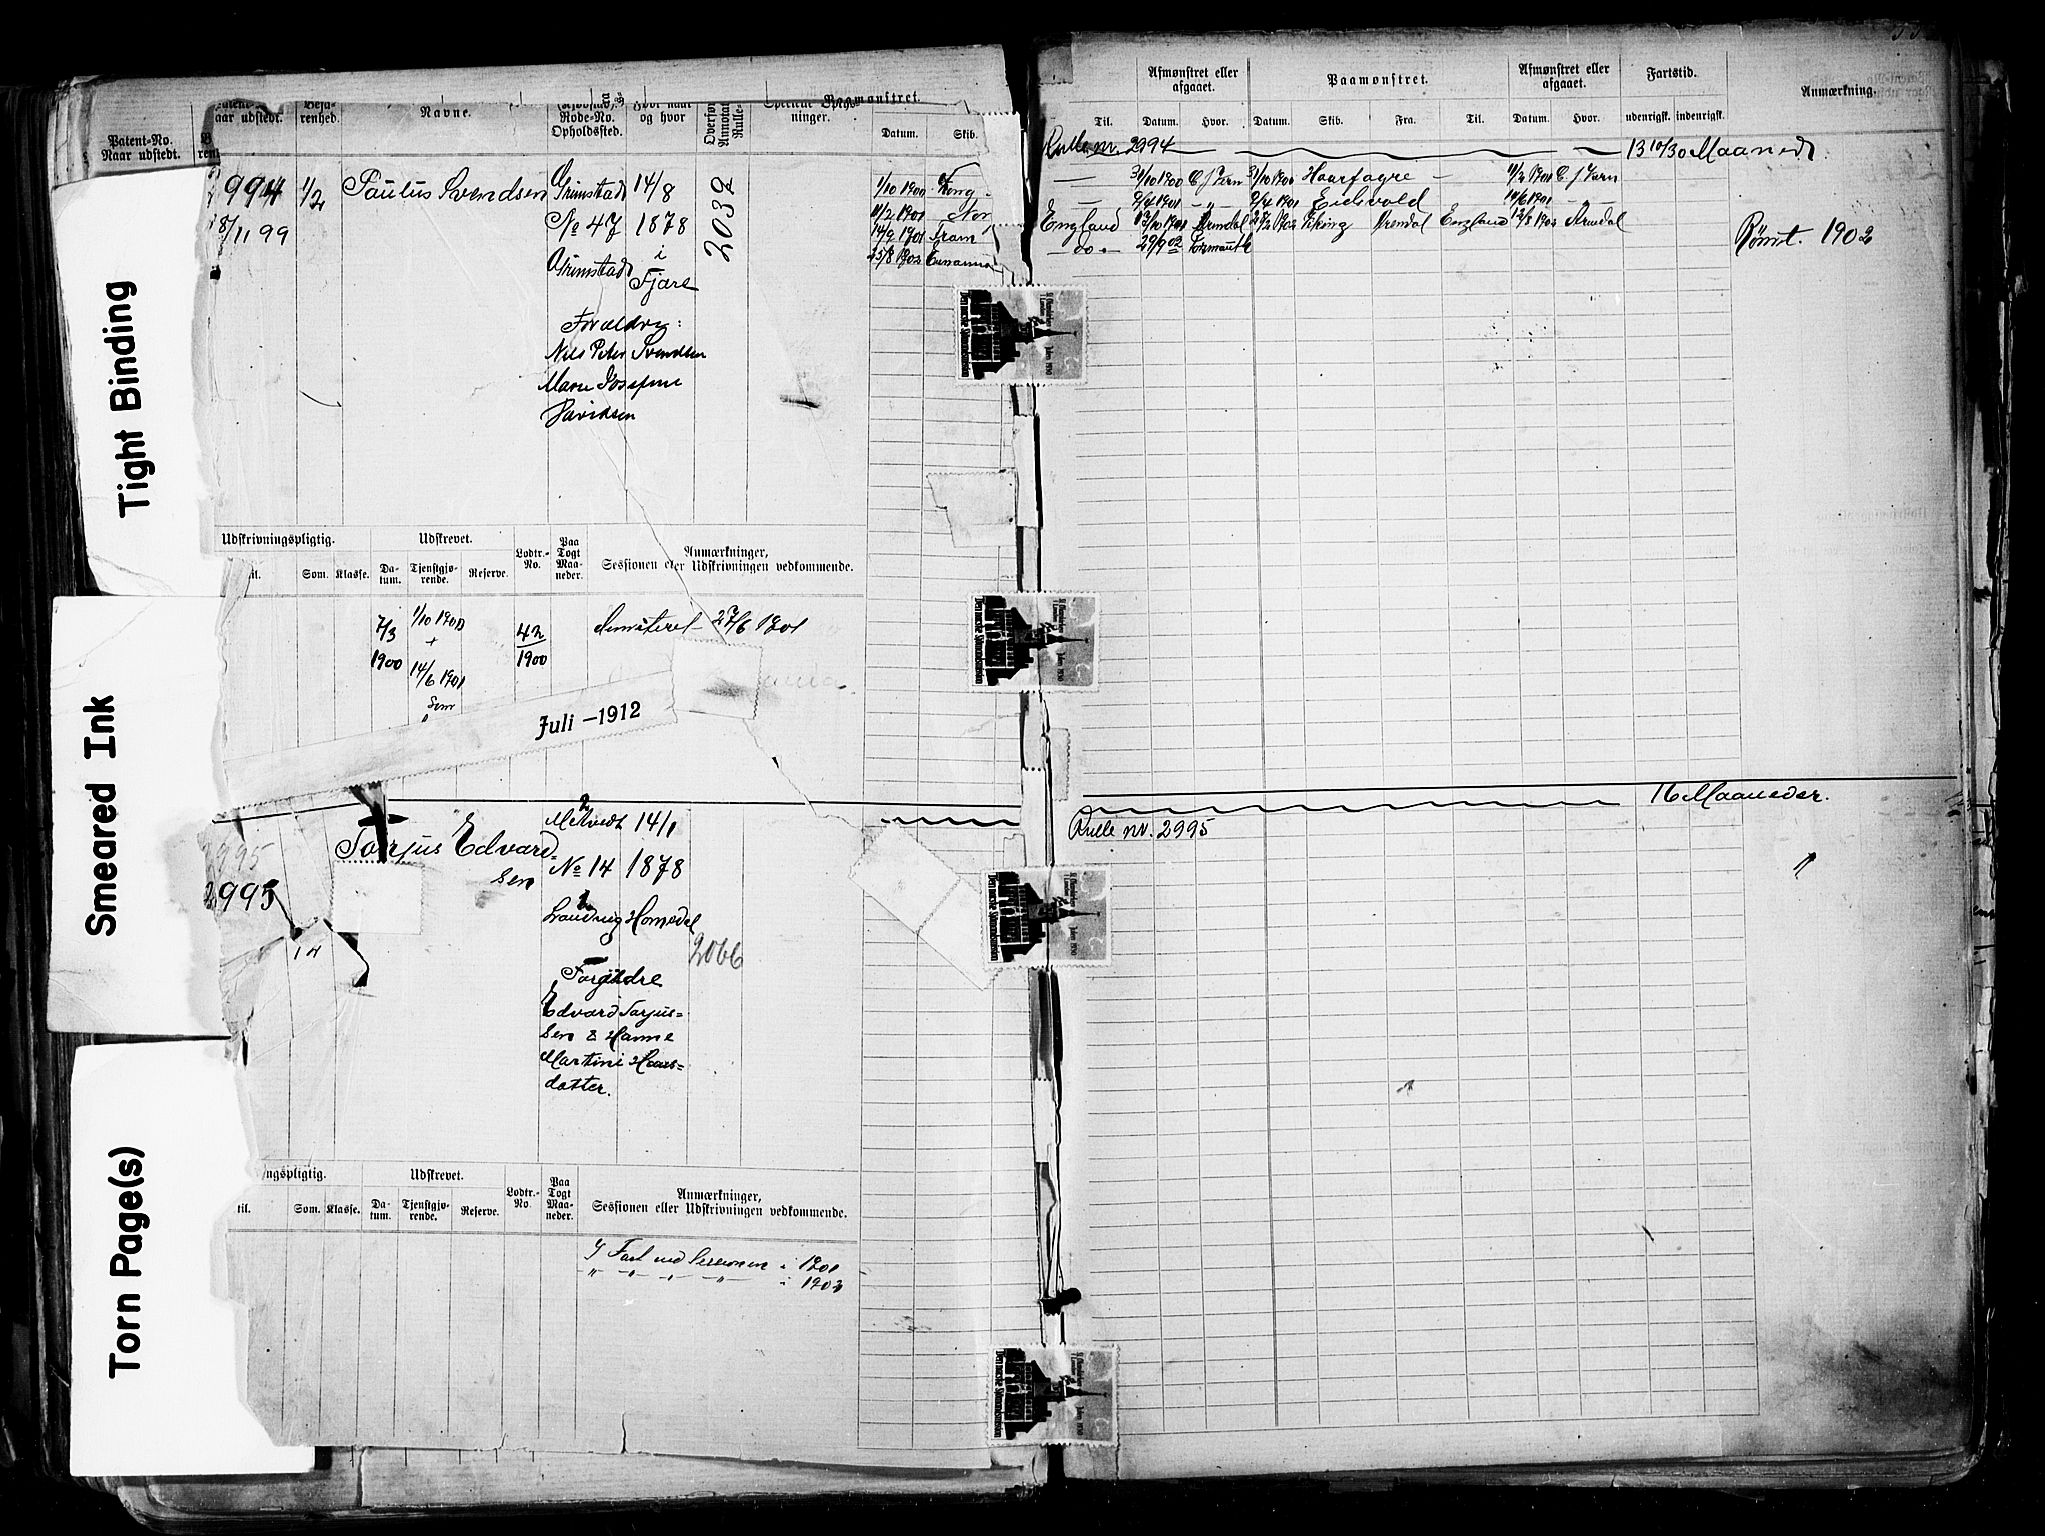 Tight Binding
Smeared Ink
Torn Page(s)
Patent-No.
Naar udstedt.
Navne.
Rode-No.
Opholdssted.
og hvor
Rulle-
ninger.
Paamønstret.
Datum.
Skib.
994
1/2
Paulus Svendsen
Grimstad
14/8
2032
1/10 1900
8/11 99
No 47
1878
11/2 1901
Grimstad
i
14/9 1901 Fram
Fjære
25/8 1902
Forældre:
Nils Peter Svendsen
Maren Josefine
Davidsen
Udskrivningspligtig.
Udskrevet.
Lodtr.-
No.
Paa
Togt
Maa-
neder.
Anmærkninger,
Sessionen eller Udskrivningen vedkommende.
til.
Som.
Klasse.
Da-
tum.
Tjenstgjø-
rende.
Reserve.
7/3
1900
1/10 1900
+
14/6 1901
42
1900
Dimiteret 27/6 1901
Juli -1912
2995
2995
14
Torjus Edvard-
sen
14/1
No 14
1878
Landvig
Homedal
2066
Forældre
Edvard Torjus-
sen & Hanne
Martine Hans-
datter.
ngspligtig.
Udskrevet.
Lodtr.-
No.
Paa
Togt
Maa-
neder.
Anmærkninger,
Sessionen eller Udskrivningen vedkommende.
til.
Som.
Klasse.
Da-
tum.
Tjenstgjø-
rende.
Reserve.
I Fart ved Sessionen i 1901
" " " " i 1902
Afmønstret eller
afgaaet.
Paamønstret.
Afmønstret eller
afgaaet.
Fartstid.
Anmærkning.
Til.
Datum.
Hvor.
Datum.
Skib.
Fra.
Til.
Datum.
Hvor.
udenrigsk.
indenrigsk.
Rulle nr. 2994
13 10/30 Maaneder.
31/10 1900 C J Vern 31/10 1900 Haarfagre - 11/2 1901 C J Vern
2/4 1901 - " - 2/4 1901 Eidsvold 14/6 1901
England 13/10 1901 Arendal 27/2 1902 Viking Arendal England 12/8 1902 Arendal
- do - 29/9 02
Rømt. 1902
16 Maaneder.
Rulle nr. 2995
Julen 1930
Julen 1930
Julen 1930
Julen 1930